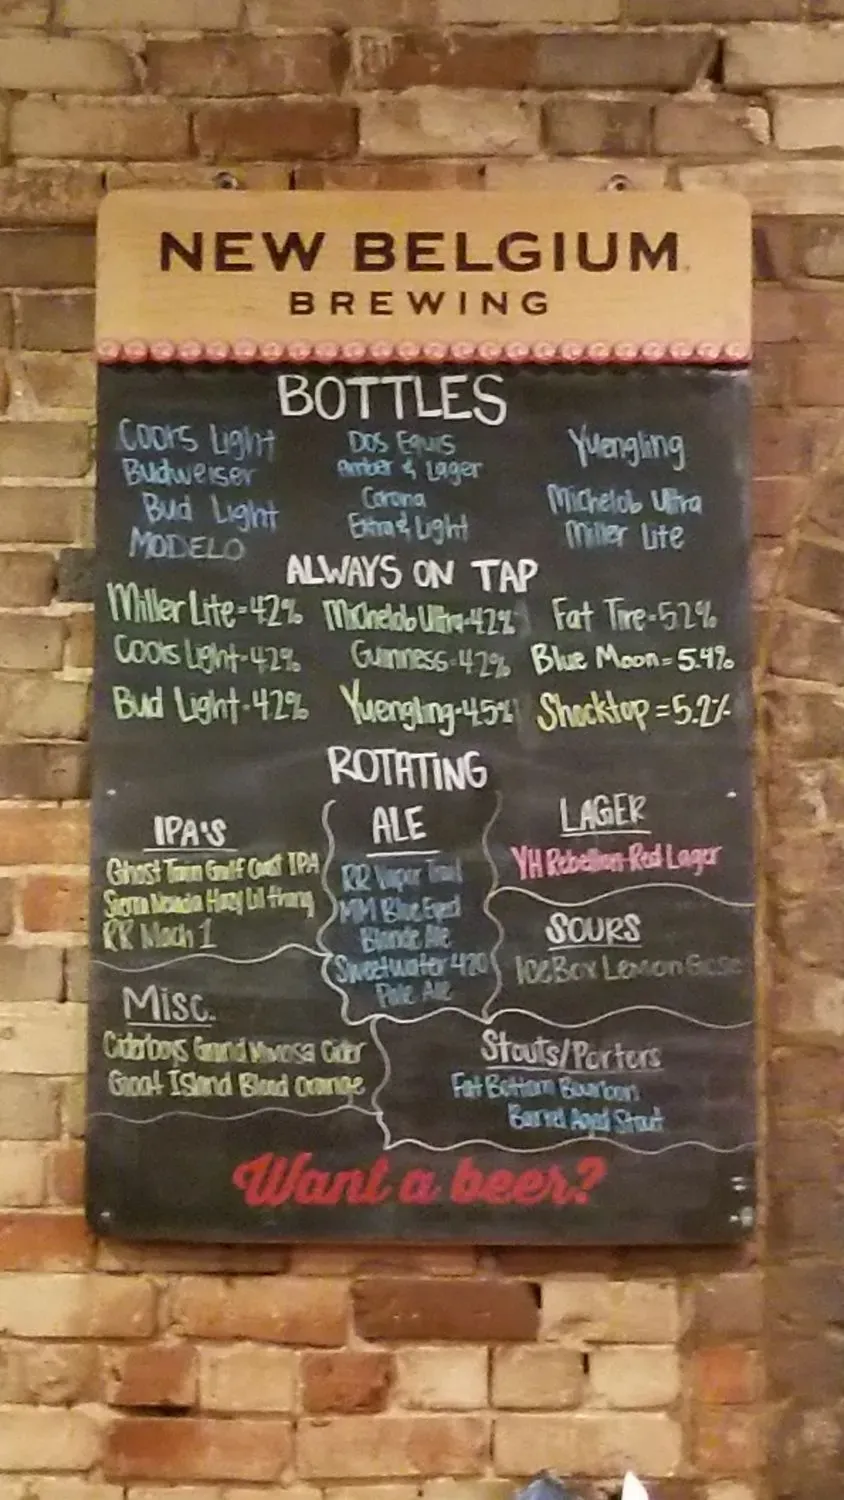 NEW BELGIUM
BREWING
BOTTLES
Coors Light
Budweiser
Bud Light
MODELO
Dos Equis
Amber & Lager
Corona
Extra & Light
Yuengling
Michelob Ultra
Miller Lite
ALWAYS ON TAP
Miller Lite-4.2%
Coors Light-4.2%
Bud Light-4.2%
Michelob Ultra-4.2%
Guinness-4.2%
Yuengling-4.5%
Fat Tire-5.2%
Blue Moon=5.4%
Shocktop=5.2%
ROTATING
IPA'S
Ghost Train Gulf Coast IPA
Sierra Nevada Hazy Lil thang
RR Mach 1
ALE
RR Vapor Trail
MM Blue Eyed
Blonde Ale
Sweetwater 420
Pale Ale
LAGER
YH Rebellion-Red Lager
SOURS
IceBox Lemon Gose
Misc.
Ciderboys Grand Mimosa Cider
Goat Island Blood orange
Stouts/Porters
Fat Bottom Bourbon
Barrel Aged Stout
Want a beer?